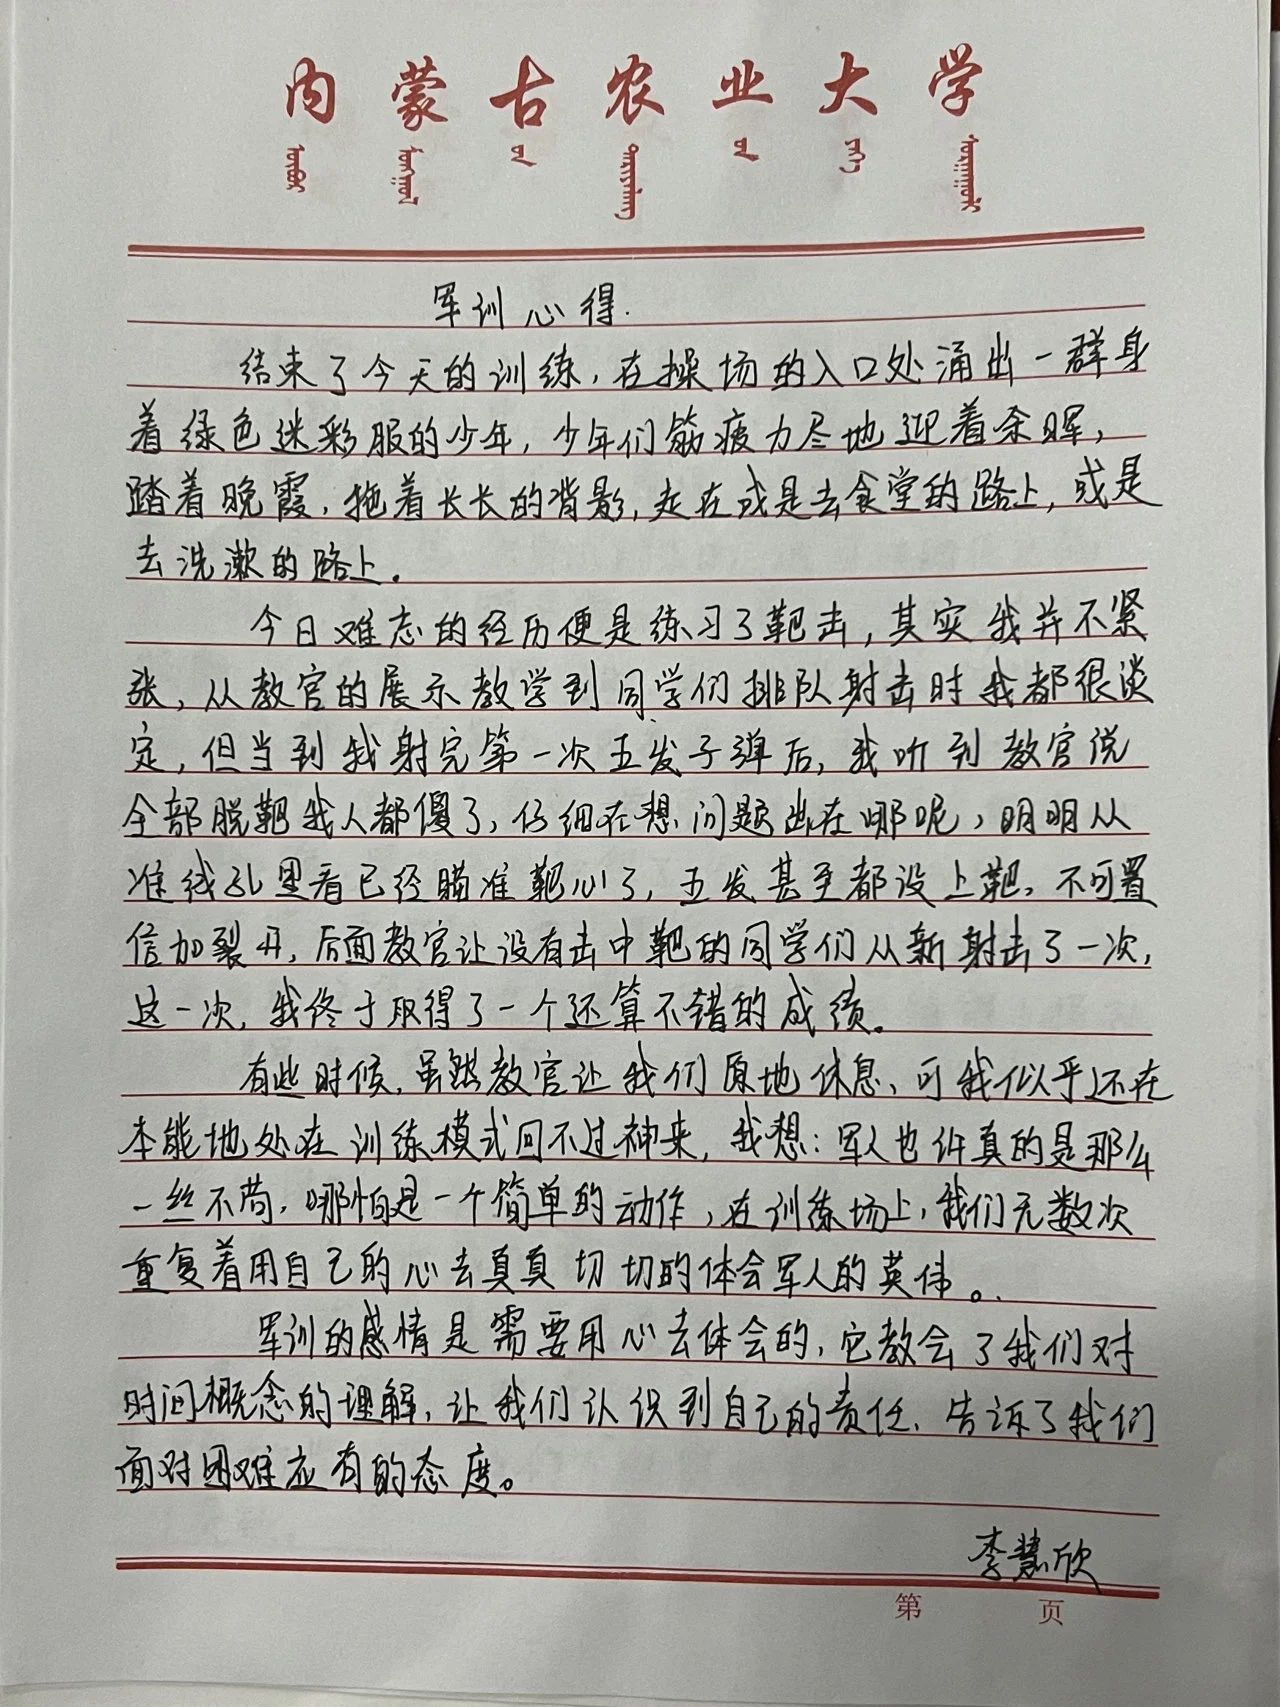 内蒙古农业大学
军训心得.
结束了今天的训练,在操场的入口处涌出一群身
着绿色迷彩服的少年,少年们筋疲力尽地迎着余晖,
踏着晚霞,拖着长长的背影,走在或是去食堂的路上,或是
去洗漱的路上。
今日难忘的经历便是练习了靶击,其实我并不紧
张,从教官的展示教学到同学们排队射击时我都很淡
定,但当到我射完第一次五发子弹后,我听到教官说
全部脱靶我人都傻了,仔细在想问题出在哪呢,明明从
准线孔里看已经瞄准靶心了,五发甚至都没上靶,不可置
信加裂开,后面教官让没有击中靶的同学们从新射击了一次,
这一次,我终于取得了一个还算不错的成绩。
有些时候,虽然教官让我们原地休息,可我似乎还在
本能地处在训练模式回不过神来,我想:军人也许真的是那么
一丝不苟,哪怕是一个简单的动作,在训练场上,我们无数次
重复着用自己的心去真真切切的体会军人的英伟。
军训的感情是需要用心去体会的,它教会了我们对
时间概念的理解,让我们认识到自己的责任,告诉了我们
面对困难应有的态度。
李慧欣
第 页